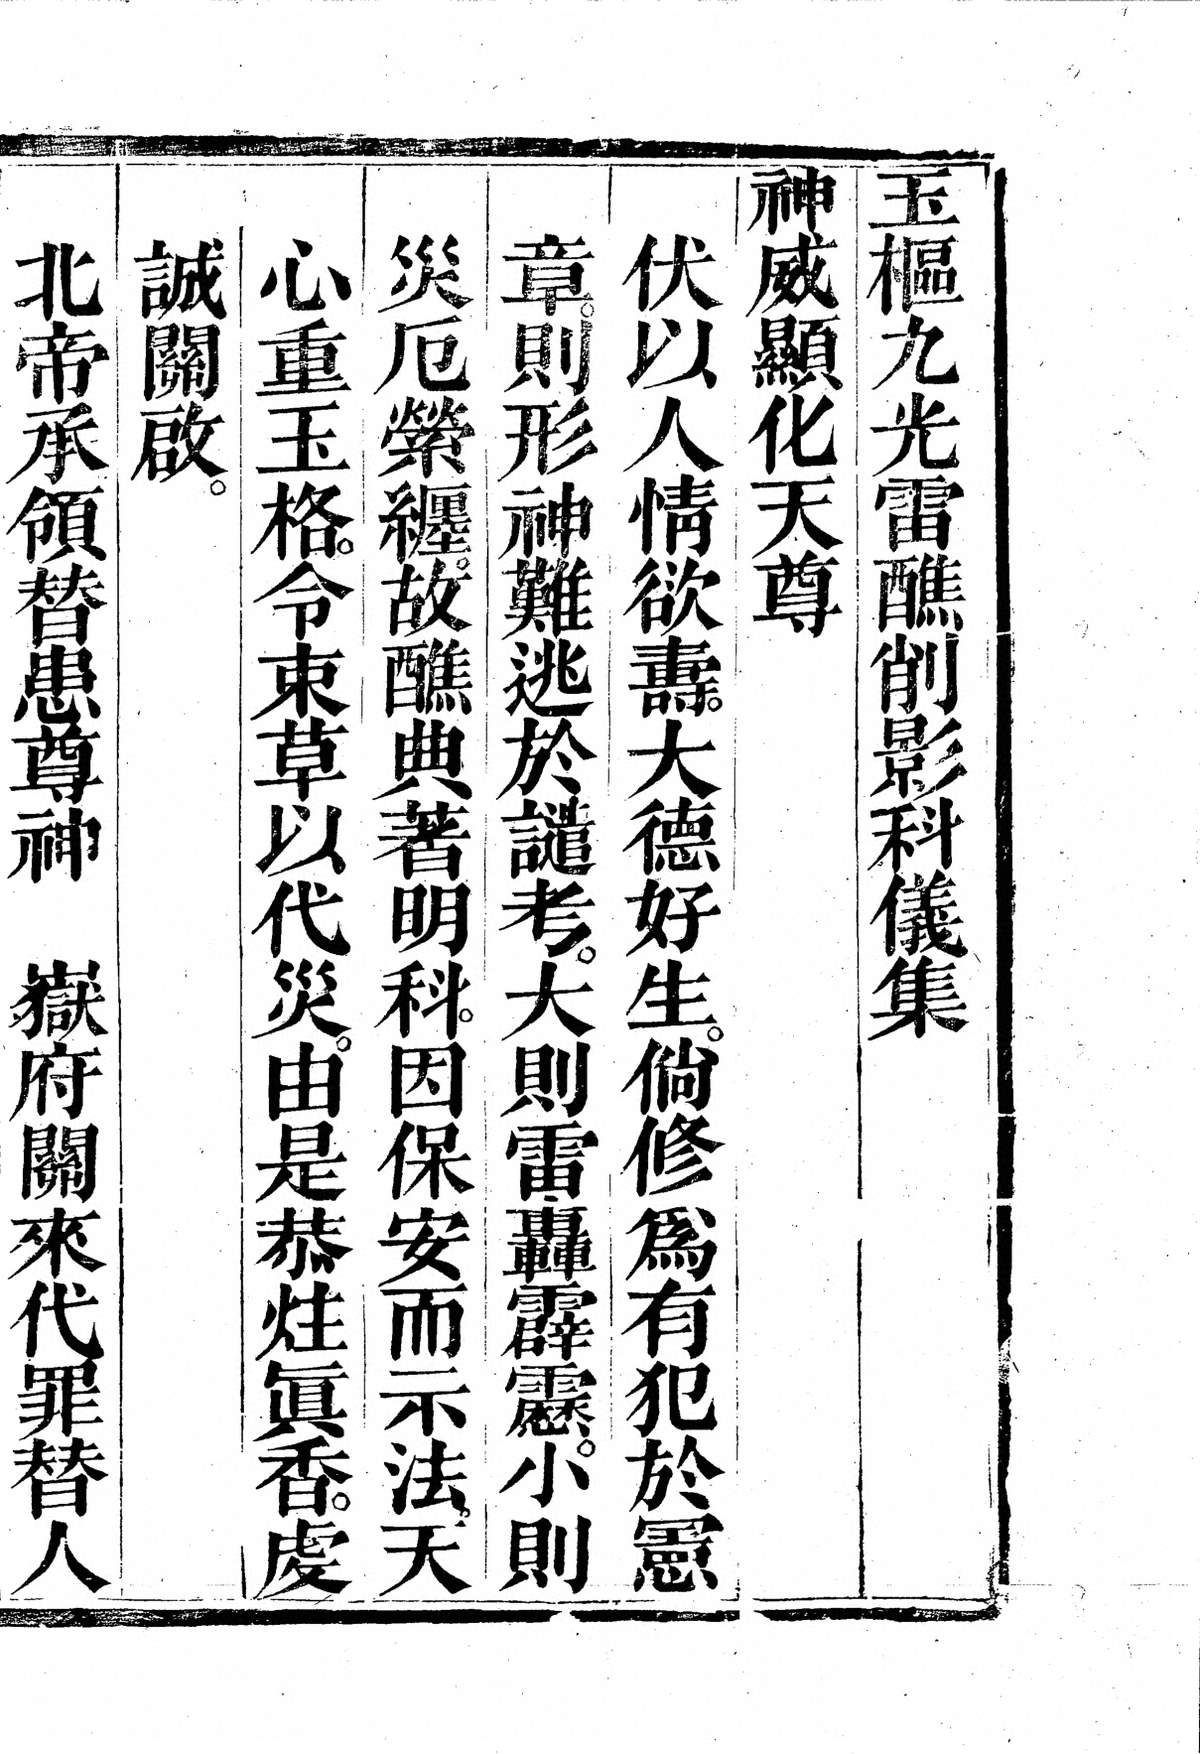 玉樞九光雷醮削影科儀集
神威顯化天尊
伏以人情欲壽。大德好生。倘修爲有犯於憲
章。則形神難逃於譴考。大則雷轟霹靂。小則
災厄縈纏。故醮典著明科。因保安而示法。天
心重玉格。令束草以代災。由是恭炷眞香。虔
誠關啟。
北帝承領替患尊神　嶽府關來代罪替人